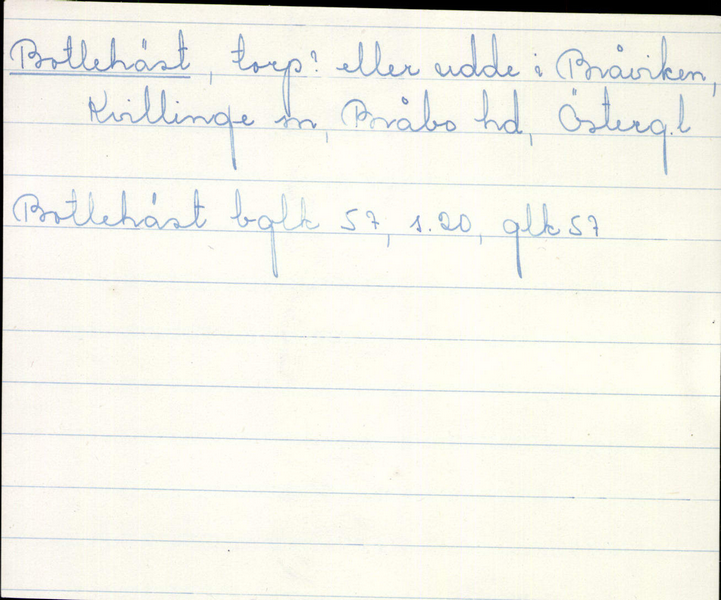 Bottlehåst, torp? eller udde i Bråviken,
Kvillinge sn, Bråbo hd, Österg.l
Bottlehåst bglk 57, s.20, glk 57